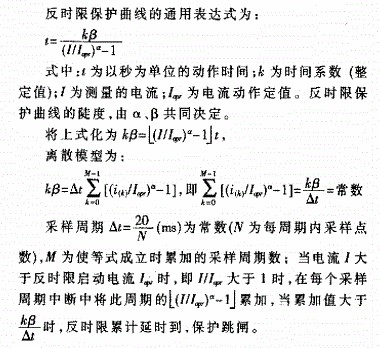 反时限保护曲线的通用表达式为：
t=kβ/((I/Iopr)^α-1)
式中：t 为以秒为单位的动作时间；k 为时间系数（整
定值）；I 为测量的电流；Iopr为电流动作定值。反时限保
护曲线的陡度，由 α、β 共同决定。
将上式化为 kβ=⌊(I/Iopr)^α-1⌋t，
离散模型为：
kβ=Δt∑_{k=0}^{M-1}[(i(k)/Iopr)^α-1]，即∑_{k=0}^{M-1}[(i(k)/Iopr)^α-1]=kβ/Δt=常数
采样周期 Δt=20/N(ms)为常数(N 为每周期内采样点
数)，M 为使等式成立时累加的采样周期数；当电流 I 大
于反时限启动电流 Iopr 时，即 I/Iopr 大于 1 时，在每个采样
周期中断中将此周期的⌊(I/Iopr)^α-1⌋累加，当累加值大于
kβ/Δt时，反时限累计延时到，保护跳闸。